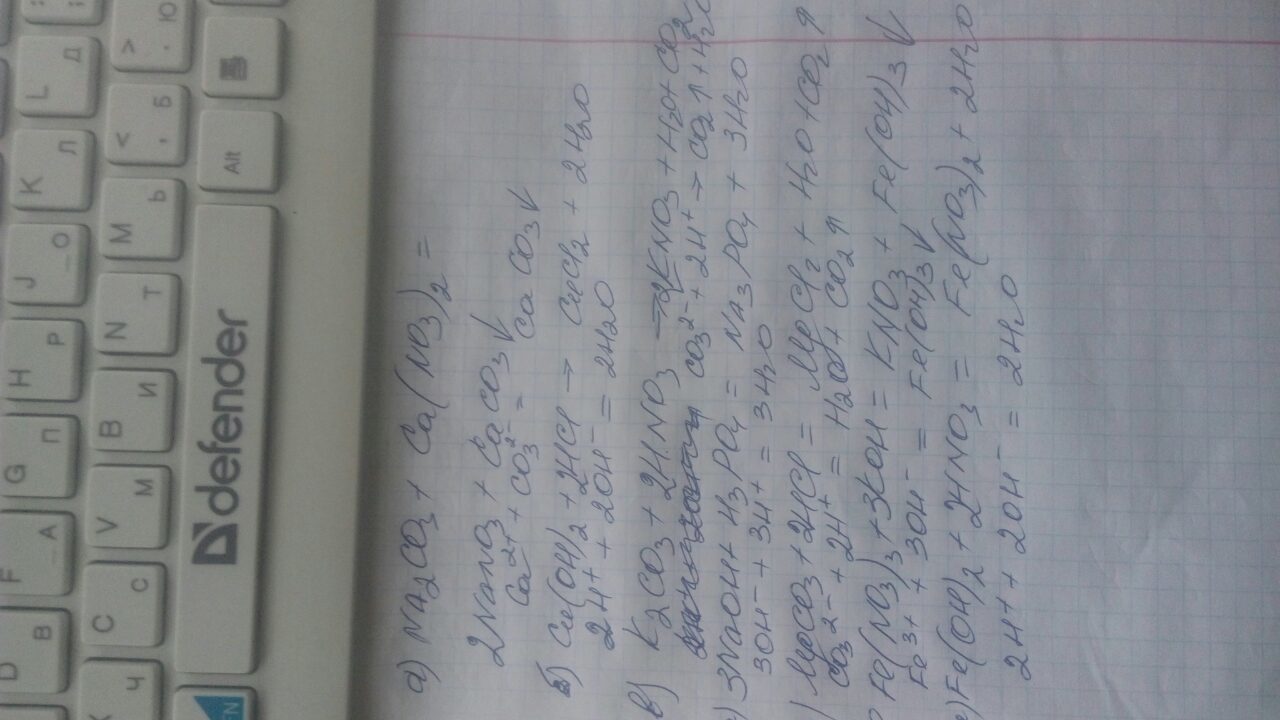 а) Na2CO3 + Ca(NO3)2 =
2NaNO3 + CaCO3↓
Ca2+ + CO3 2- = CaCO3↓
б) Cu(OH)2 + 2HCl → CuCl2 + 2H2O
2H+ + 2OH- = 2H2O
в) K2CO3 + 2HNO3 → 2KNO3 + H2O + CO2
CO3 2- + 2H+ → CO2↑ + H2O
) 3NaOH + H3PO4 = Na3PO4 + 3H2O
3OH- + 3H+ = 3H2O
) MgCO3 + 2HCl = MgCl2 + H2O + CO2↑
CO3 2- + 2H+ = H2O + CO2↑
Fe(NO3)3 + 3KOH = KNO3 + Fe(OH)3↓
Fe3+ + 3OH- = Fe(OH)3↓
) Fe(OH)2 + 2HNO3 = Fe(NO3)2 + 2H2O
2H+ + 2OH- = 2H2O
defender
Alt
F А
G П
H Р
J О
K Л
L Д
D В
C С
V М
B И
N Т
M Ь
< , Б
> . Ю
Ч